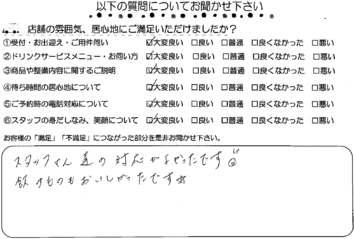 以下の質問についてお聞かせ下さい
二. 店舗の雰囲気、居心地にご満足いただけましたか？
①受付・お出迎え・ご用件伺い ☑大変良い □良い □普通 □良くなかった □悪い
②ドリンクサービスメニュー・お伺い方 ☑大変良い □良い □普通 □良くなかった □悪い
③商品や整備内容に関するご説明 ☑大変良い □良い □普通 □良くなかった □悪い
④待ち時間の居心地について ☑大変良い □良い □普通 □良くなかった □悪い
⑤ご予約時の電話対応について ☑大変良い □良い □普通 □良くなかった □悪い
⑥スタッフの身だしなみ、笑顔について ☑大変良い □良い □普通 □良くなかった □悪い
お客様の「満足」「不満足」につながった部分を是非お聞かせ下さい。
スタッフさん達の対応がよかったです
飲みものもおいしかったです